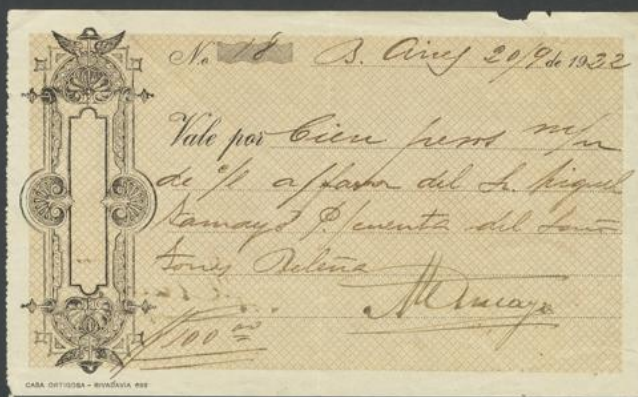 No 18 B. Aires 20/9 de 1932
Vale por Cien pesos m/n
de c/l a/favor del Sr. Miguel
Tamayo P./cuenta del
$100 00
CASA ORTIGOSA - RIVADAVIA 698